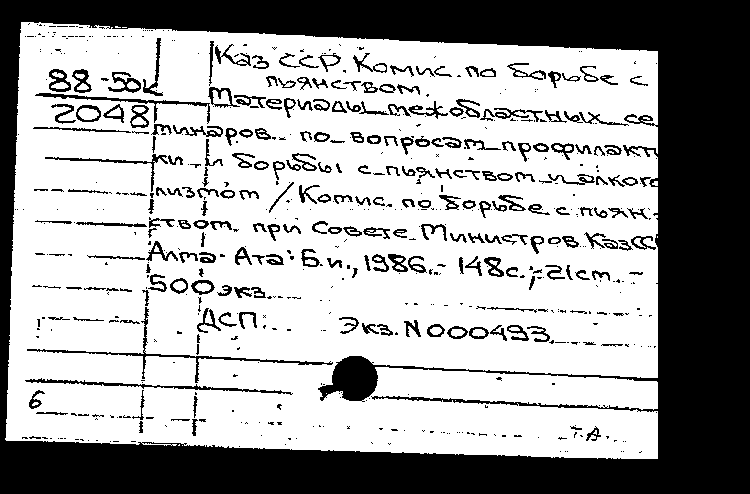 Каз ССР. Комис. по борьбе с
88-50к
пьянством.
Материалы межобластных се
2048
минаров по вопросам профилакти
ки и борьбы с пьянством и алкого
лизмом / Комис. по борьбе с пьян-
ством при Совете Министров КазСС
Алма-Ата: Б.и., 1986.- 148с.; 21см. -
500 экз.
ДСП. Экз. N000493.
6
Т.А.